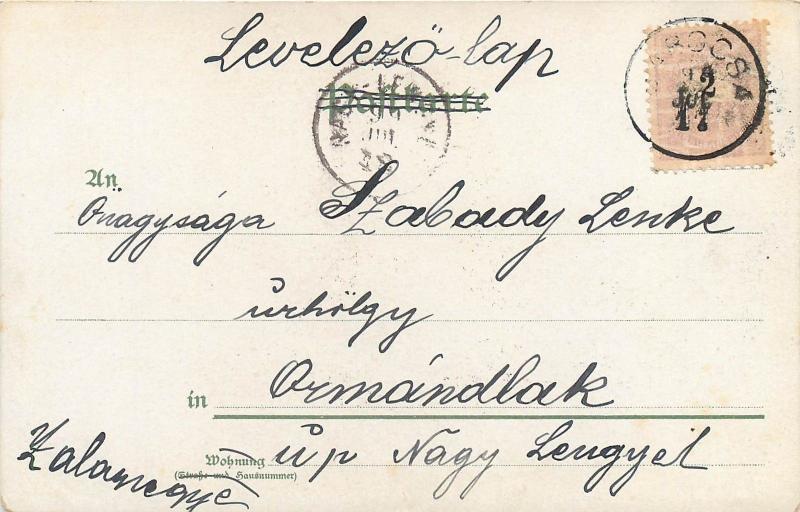 Levelező-lap
Postkarte
An
Önagysága Szabady Lenke
úrhölgy
in Ormándlak
Wohnung
(Straße und Hausnummer)
úp Nagy Lengyel
Zalamegye